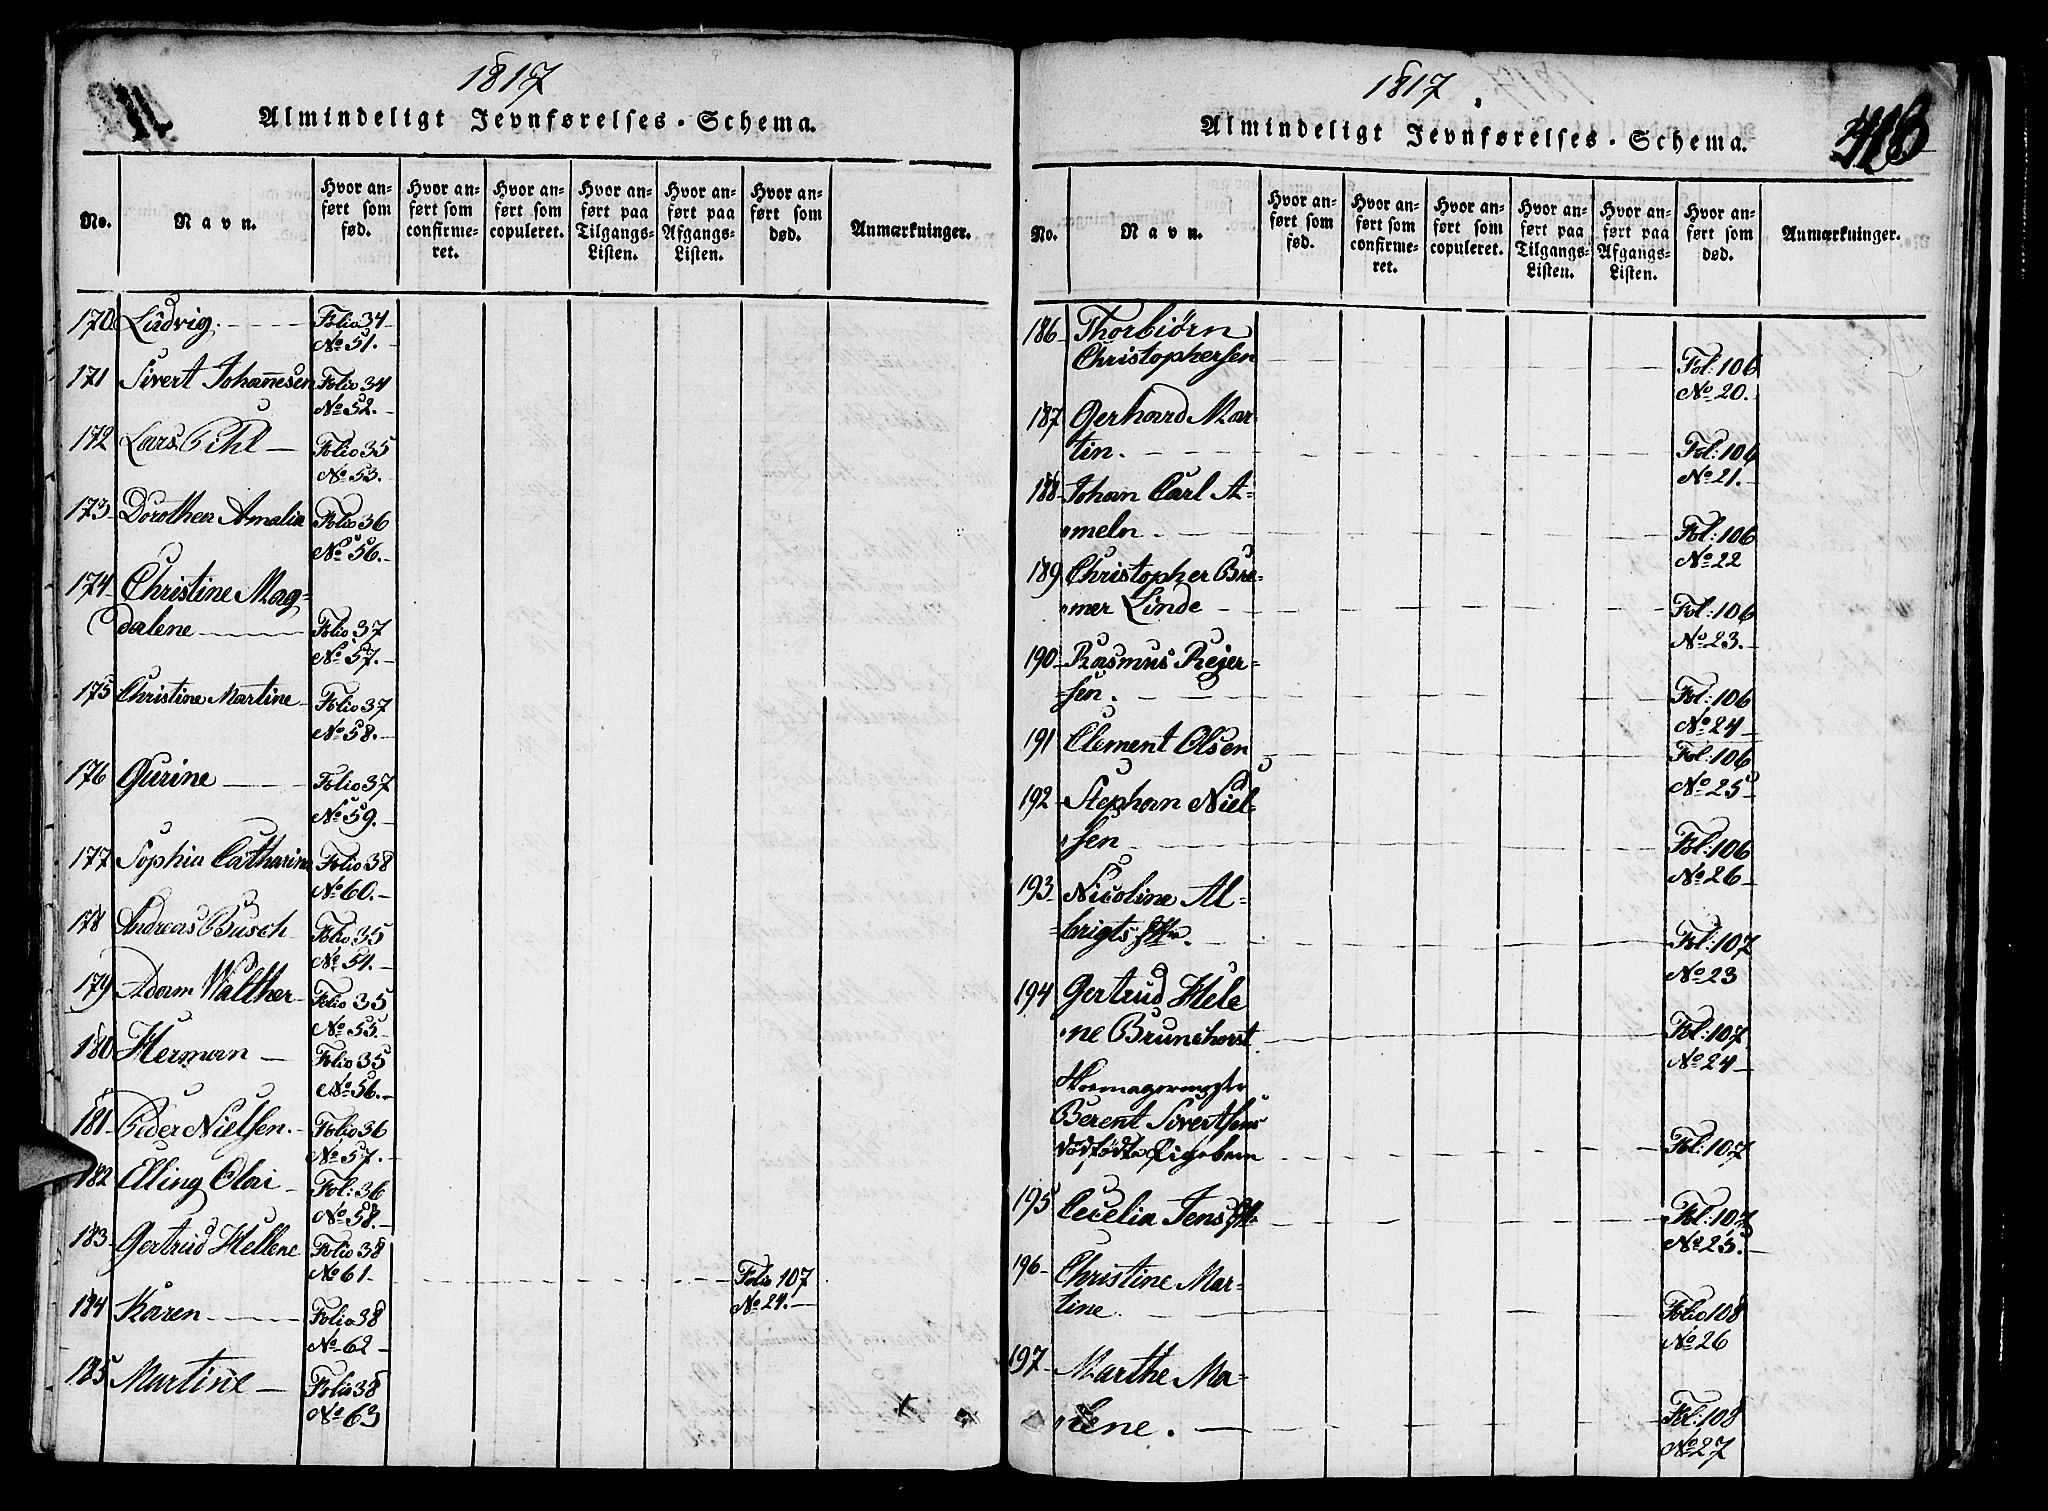 1817
Almindeligt Jevnførelses-Schema.
No.
Navn.
Hvor anført som fød.
Hvor anført som confirmeret.
Hvor anført som copuleret.
Hvor anført paa Tilgangs-Listen.
Hvor anført paa Afgangs-Listen.
Hvor anført som død.
Anmærkninger.
170 Ludvig. Folio 34
No 51.
171 Sivert Johannesen Folio 34
No 52.
172 Lars Pihl Folio 35
No 53.
173 Dorothea Amalia Folio 36
No 56.
174 Christine Mag=
dalene Folio 37
No 57.
175 Christine Martine Folio 37
No 58.
176 Gurine Folio 37
No 59.
177 Sophia Catharina Folio 38
No 60.
178 Andreas Busch Folio 35
No 54.
179 Adam Walther Folio 35
No 55.
180 Herman Folio 35
No 56.
181 Peder Nielsen. Folio 36
No 57.
182 Elling Olai Fol: 36
No 58.
183 Gertrud Hellene Folio 38
No 61 Folio 107
184 Karen Folio 38 No 24.
No 62
185 Martine Folio 38
No 63
1817
Almindeligt Jevnførelses-Schema.
No.
Navn.
Hvor anført som fød.
Hvor anført som confirmeret.
Hvor anført som copuleret.
Hvor anført paa Tilgangs-Listen.
Hvor anført paa Afgangs-Listen.
Hvor anført som død.
Anmærkninger.
186 Thorbiørn
Christophersen Fol: 106
No 20.
187 Gerhard Mar=
tin. Fol: 106
No 21.
188 Johan Carl A=
meln. Fol: 106
No 22
189 Christopher Bre=
mer Linde Fol: 106
No 23.
190 Rasmus Rejer=
sen. Fol: 106
No 24
191 Clement Olsen Fol: 106
No 25
192 Stephan Niel=
sen Fol: 106
No 26
193 Nicoline Al=
brigts Fol: 107
No 23
194 Gertrud Hele
ne Brunchorst Fol: 107
No 24
Berent Sivertsens
Fol: 107
195 Cecelia Jens Fol: 107
No 25.
196 Christine Mar=
tine Folio 108
No 26
197 Marthe Ma=
lene. Fol: 108
No 27